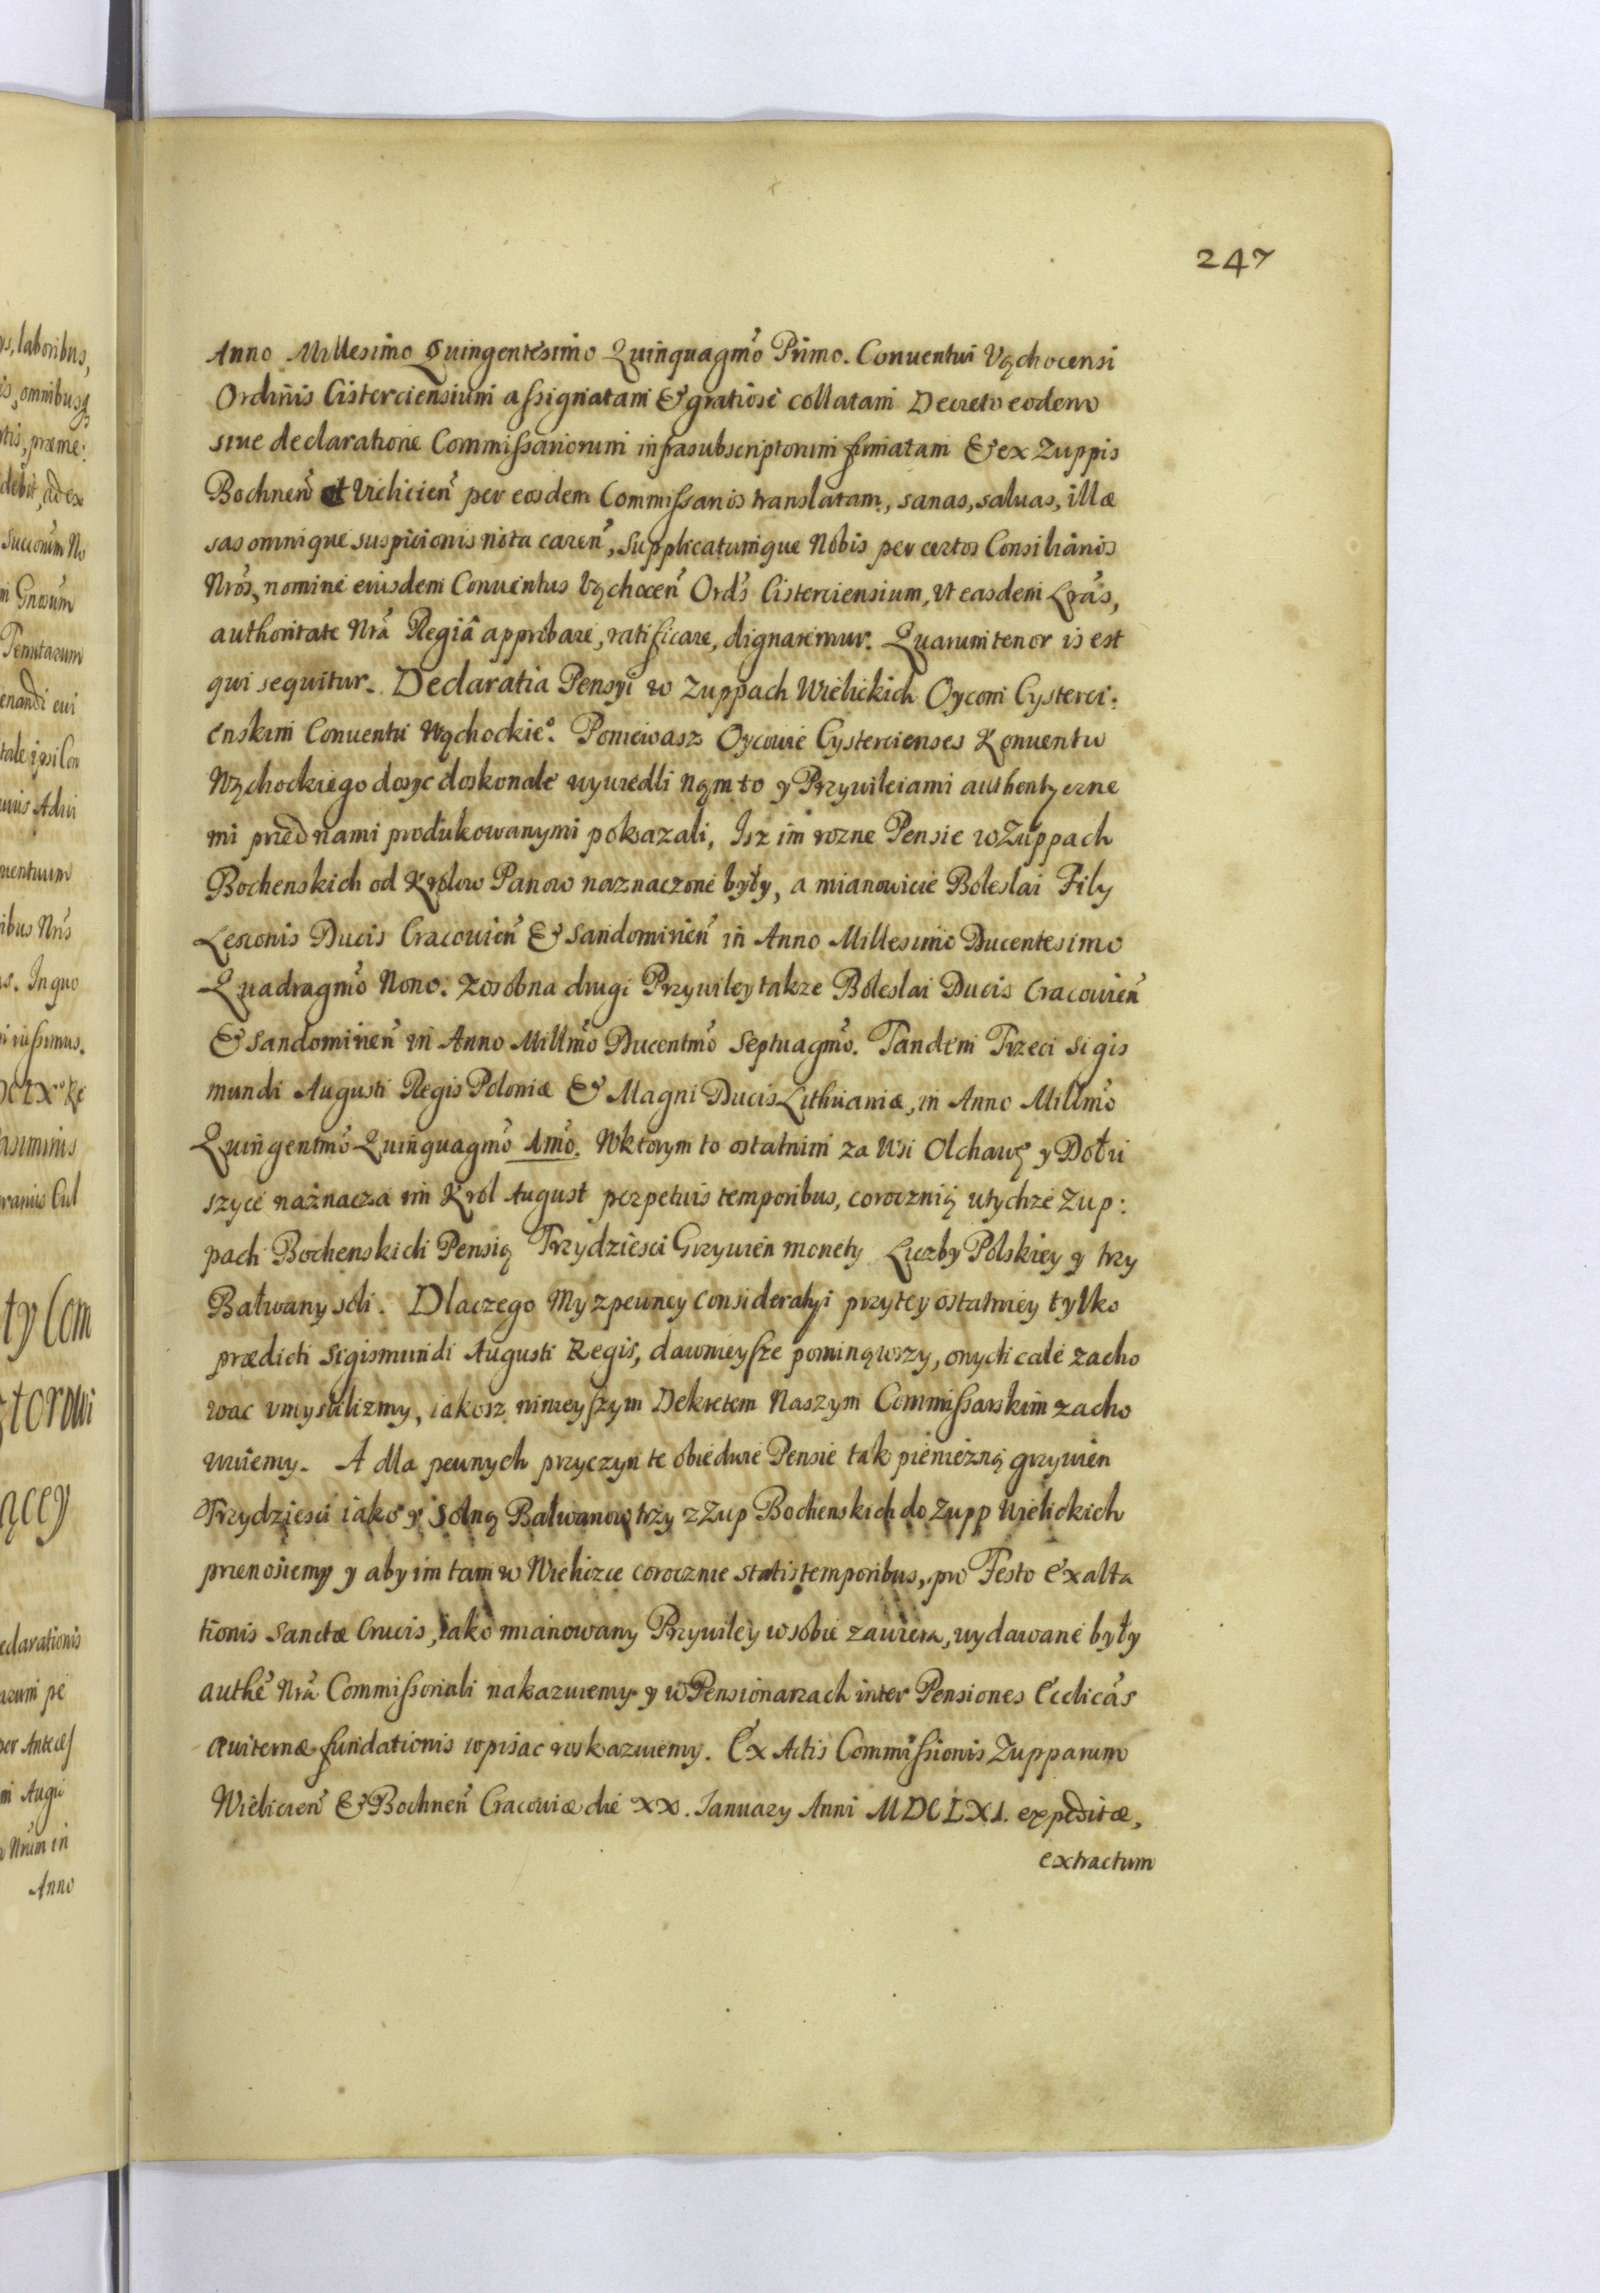 247
Anno Millesimo Quingentesimo Quinquagmo Primo. Conuentui Vąchocensi
Ordinis Cisterciensium assignatam & gratiose collatam Decreto eodem
siue declaratione Commissariorum infrasubscriptorum firmatam & ex Zuppis
Bochnen et Vielicien per eosdem Commissarios translatam, sanas, saluas, illæ
sas omnique suspicionis nota caren, Supplicatumque Nobis per certos Consiliarios
Nros, nomine eiusdem Conuentus Vąchocen Ords Cisterciensium, Vt easdem Lras,
authoritate Nrã Regiâ approbare, ratificare, dignaremur. Quarum tenor is est
qui sequitur. Declaratia Pensyi w Zuppach Wielickich Oycom Cysterci:
enskim Conuentu Wąchockieº. Poniewasz Oycowie Cystercienses Konuentu
Wąchockiego dosyc doskonale wywiedli nąm to y Przywileiami authentyczne
mi przed nami produkowanymi pokazali, Isz im rozne Pensie w Zuppach
Bochenskich od Krolow Panow naznaczone były, a mianowicie Boleslai Fily
Lesconis Ducis Cracouien & Sandomirien in Anno Millesimo Ducentesimo
Quadragmo Nono. Zosobna drugi Przywiley takze Boleslai Ducis Cracouien
& Sandomirien in Anno Millmo Ducentmo Septuagmo. Tandem Trzeci Sigis
mundi Augusti Regis Poloniæ & Magni Ducis Lithuaniæ, in Anno Millmo
Quingentmo Quinquagmo 1mo. Wktorym to ostatnim za Wsi Olchawę y Dołu
szyce naznacza im Krol August perpetuis temporibus, corocznią wtychze Zup:
pach Bochenskich Pensią Trzydziesci Grzywien monety Liczby Polskiey y trzy
Bałwany soli. Dlaczego My zpewney Consideratyi przytey ostatniey tylko
prædicti Sigismundi Augusti Regis, dawnieysze pominąwszy, onych cale zacho
wac vmyslilizmy, iakosz ninieyszym Dekretem Naszym Commissarskim zacho
wuiemy. A dla pewnych przyczyn te obiedwie Pensie tak pieniezną grzywien
Trzydziesci iako y Solną Bałwanow trzy z Zup Bochenskich do Zupp Wielickich
przenosiemy y aby im tam w Wielicze corocznie statis temporibus, pro Festo Exalta
tionis Sanctæ Crucis, iako mianowany Przywiley w sobie zawiera, wydawane były
authe Nrã Commissoriali nakazuiemy y w Pensionarzach inter Pensiones Ecclicas
æuiternæ fundationis wpisac roskazuiemy. Ex Actis Commissionis Zupparum
Wielicien & Bochnen Cracouiæ die XX. January Anni MDCLXI. expeditæ,
extractum